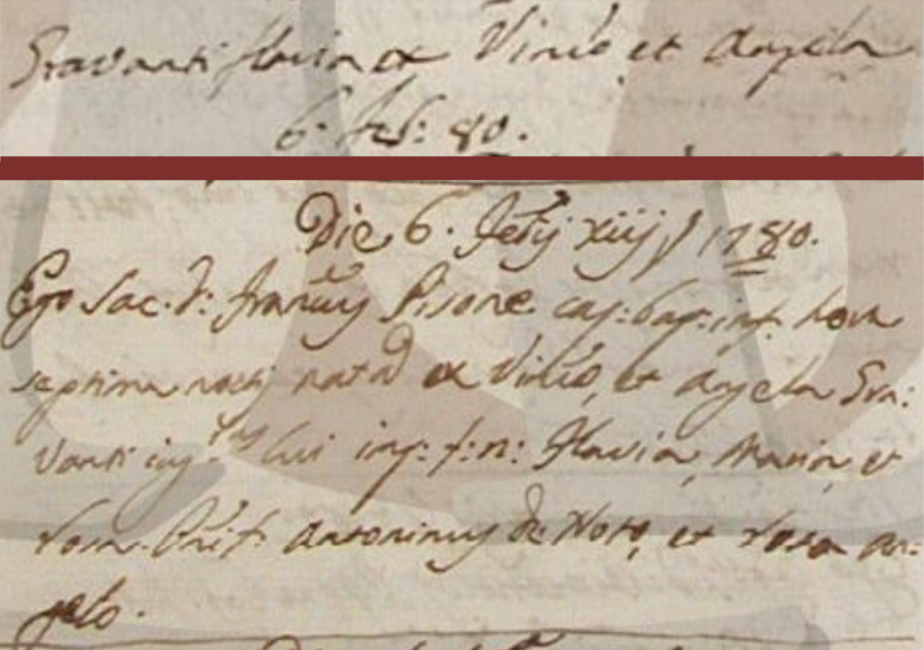 Gravanti flavia ex Vinc.o et Angela
6. feb: 80.
Die 6. Feb.ij xiij J 1780.
Ego Sac. D: Franc.us Pisone cap: bap: inf. hora
septima noctis nata ex Vinc.o, et Angela Gra:
vanti iug. huius imp: f: n: Flavia, Maria, et
Rosa. Patr. Antoninus de Noto, et Rosa An:
gelo.